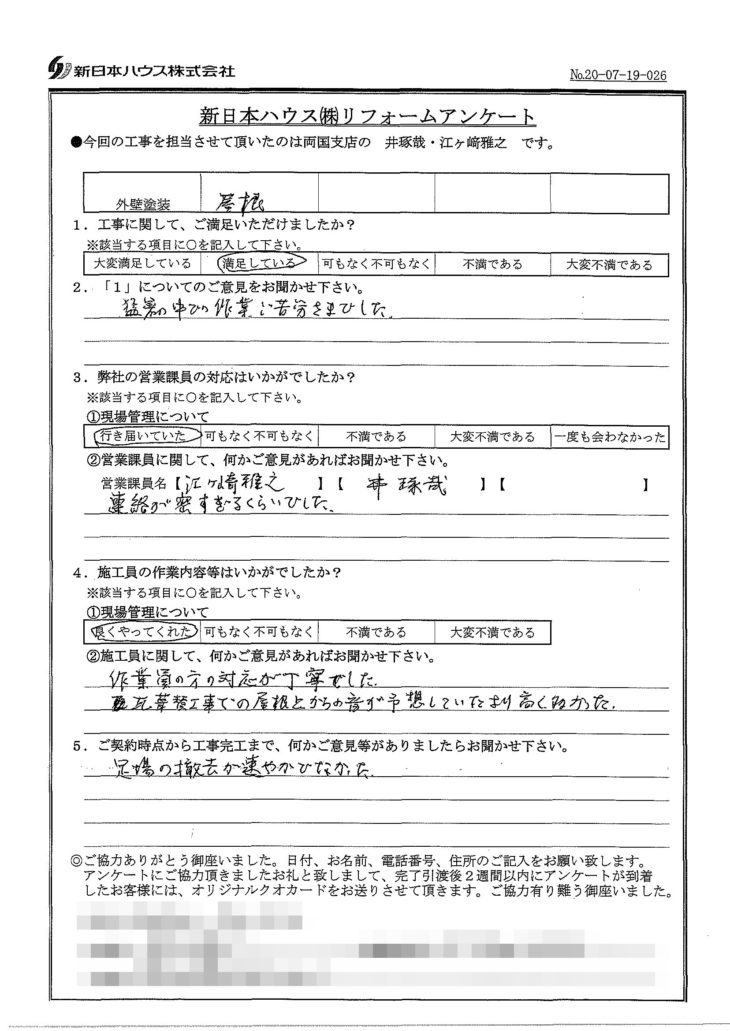 新日本ハウス株式会社
№20-07-19-026
新日本ハウス㈱リフォームアンケート
●今回の工事を担当させて頂いたのは両国支店の 井琢哉・江ヶ﨑雅之 です。
外壁塗装 屋根
1．工事に関して、ご満足いただけましたか？
※該当する項目に○を記入して下さい。
大変満足している 満足している 可もなく不可もなく 不満である 大変不満である
2．「1」についてのご意見をお聞かせ下さい。
猛暑の中での作業ご苦労さまでした。
3．弊社の営業課員の対応はいかがでしたか？
※該当する項目に○を記入して下さい。
①現場管理について
行き届いていた 可もなく不可もなく 不満である 大変不満である 一度も会わなかった
②営業課員に関して、何かご意見があればお聞かせ下さい。
営業課員名【江ヶ崎雅之 】【 井 琢哉 】【 】
連絡が密すぎるくらいでした。
4．施工員の作業内容等はいかがでしたか？
※該当する項目に○を記入して下さい。
①現場管理について
良くやってくれた 可もなく不可もなく 不満である 大変不満である
②施工員に関して、何かご意見があればお聞かせ下さい。
作業員の方の対応が丁寧でした。
瓦葺替工事での屋根上からの音が予想していたより高くなかった。
5．ご契約時点から工事完工まで、何かご意見等がありましたらお聞かせ下さい。
足場の撤去が速やかでなかった。
◎ご協力ありがとう御座いました。日付、お名前、電話番号、住所のご記入をお願い致します。
アンケートにご協力頂きましたお礼と致しまして、完了引渡後2週間以内にアンケートが到着
したお客様には、オリジナルクオカードをお送りさせて頂きます。ご協力有り難う御座いました。